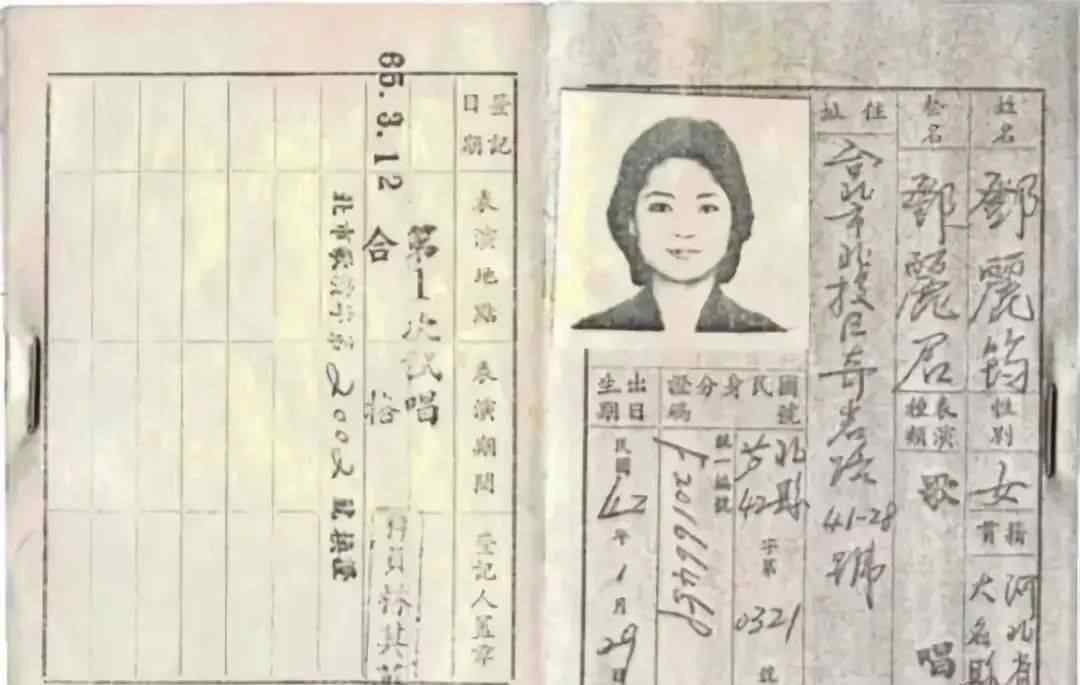 姓名
鄧麗筠
性別
女
籍貫
河北省
大名縣
藝名
鄧麗君
表演種類
歌唱
住址
台北市北投區奇岩路41-28號
國民身分證號碼
北縣
42
字第
0321
號
統一編號
出生日期
民國42年1月29日
登記日期
表演地點
表演期間
登記人蓋章
第1次試唱
65.3.12
合
格